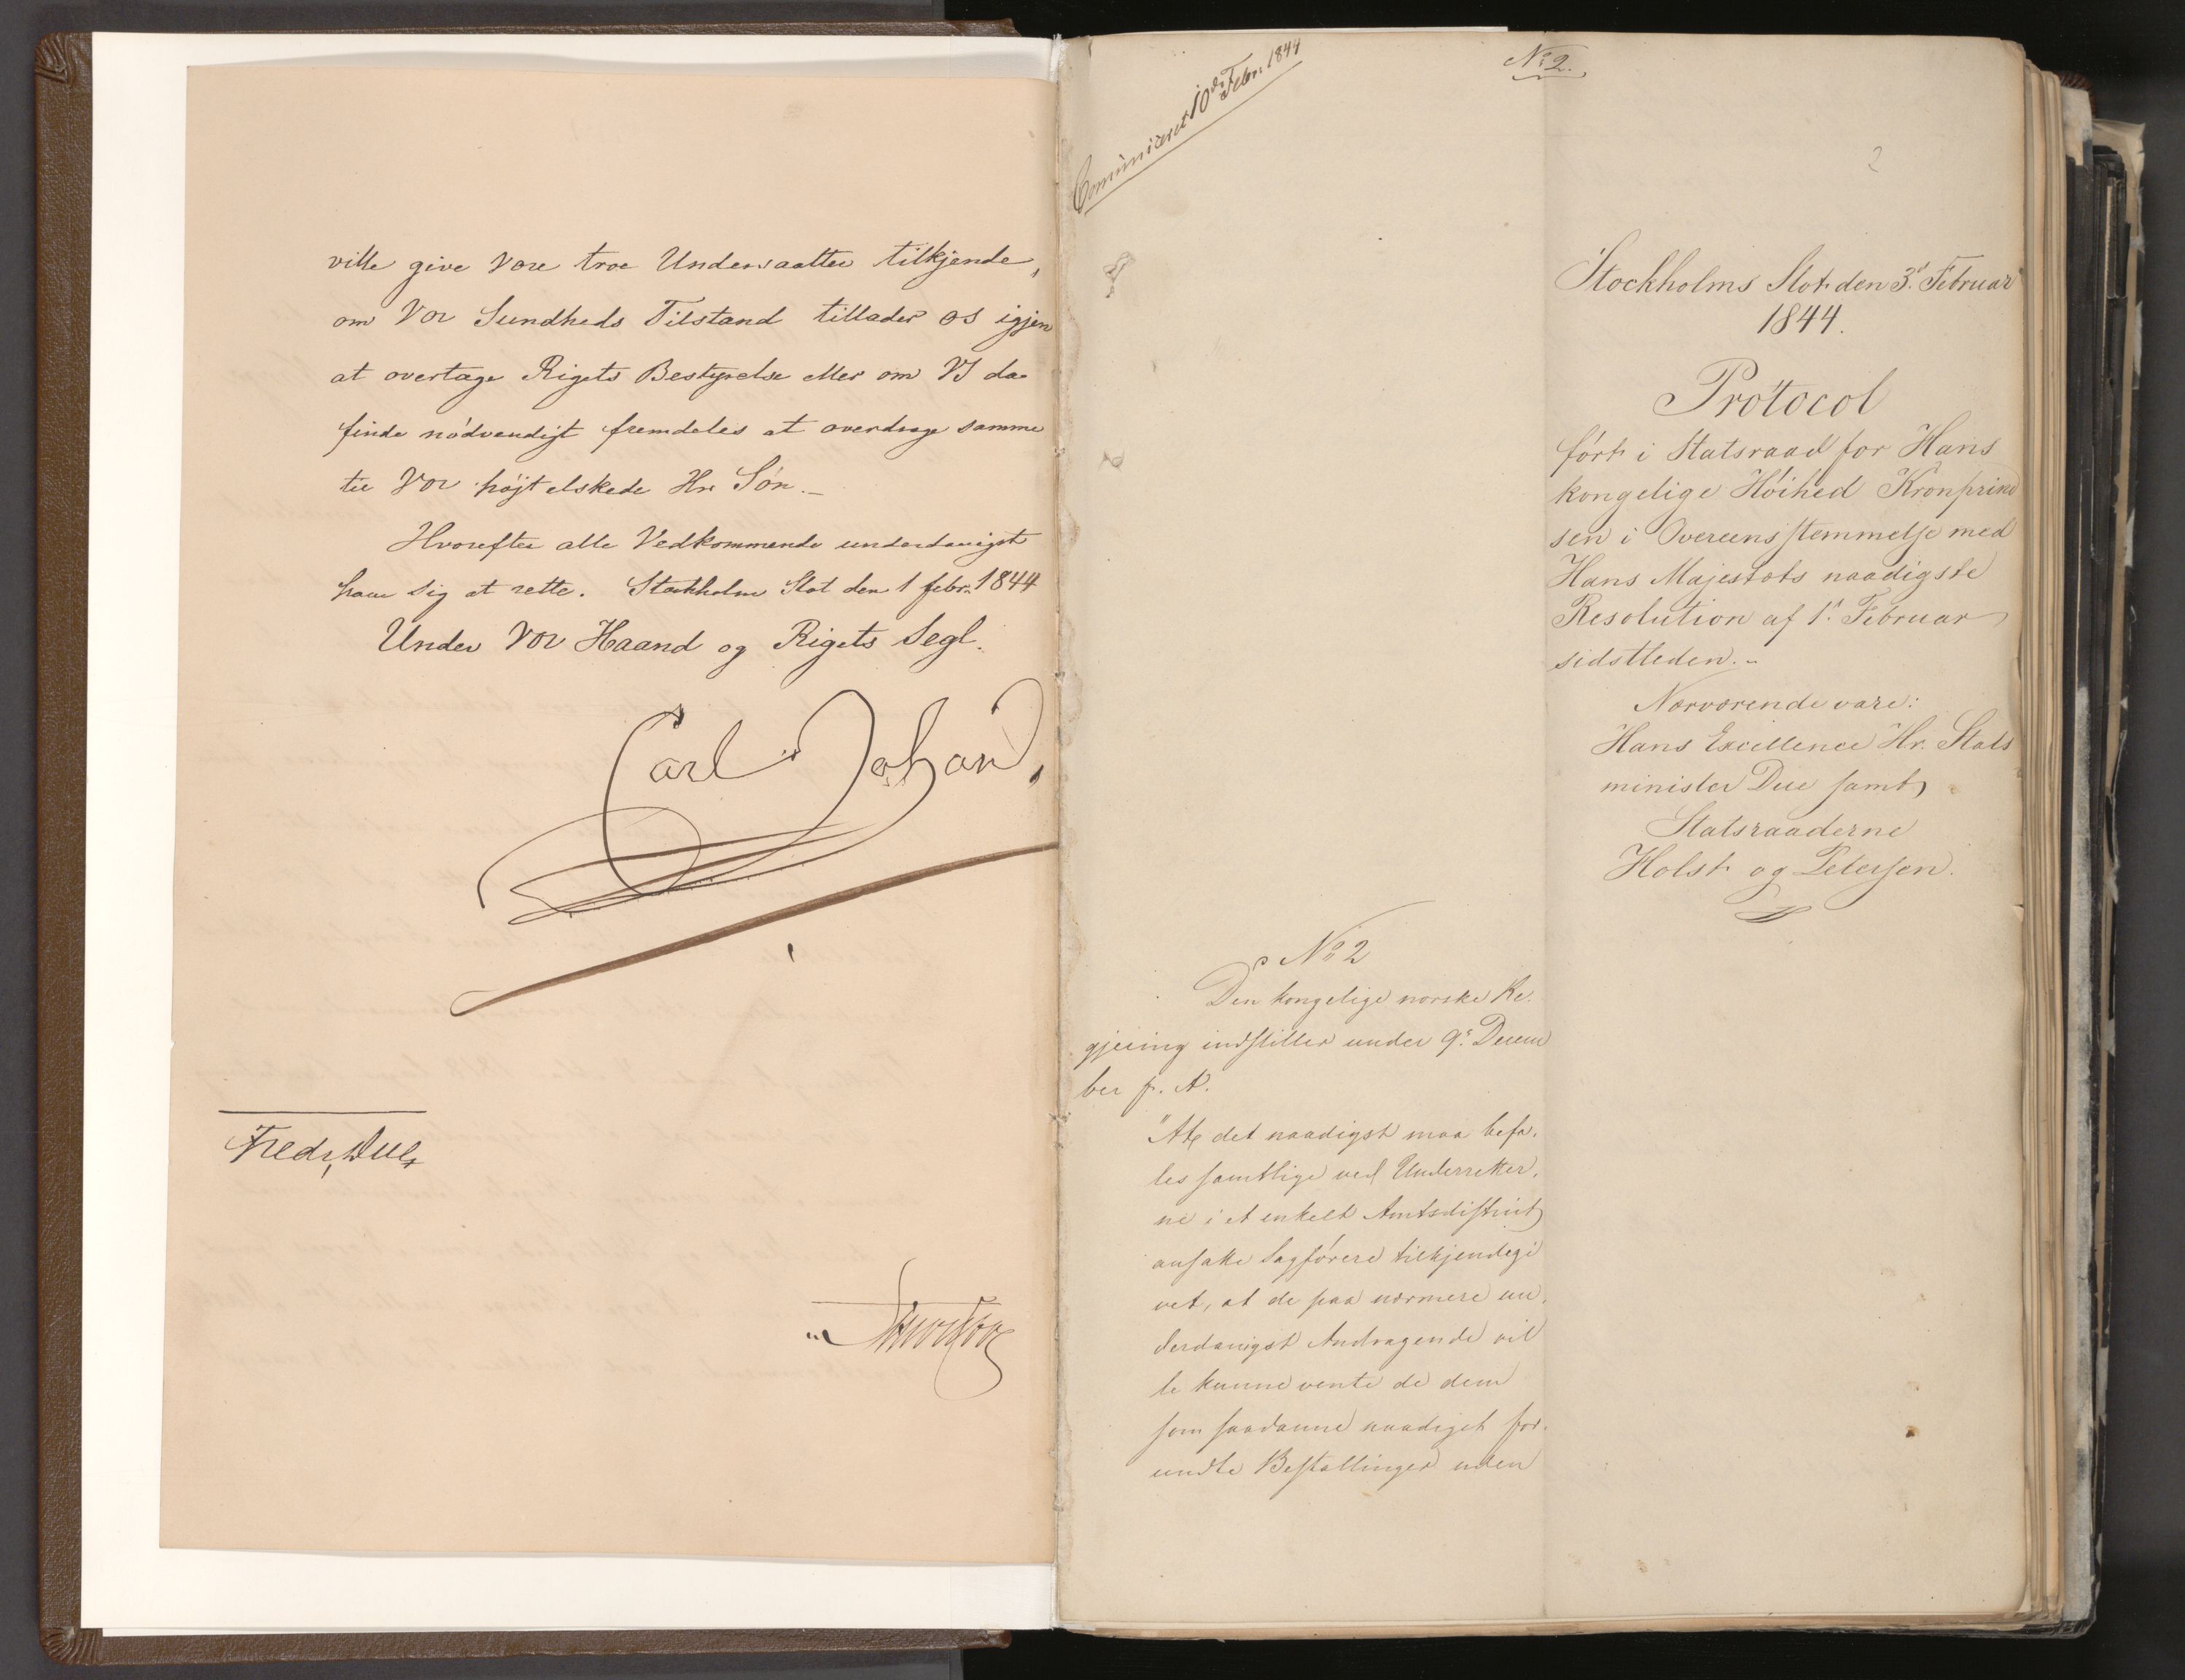 ville give Vore troe Undersaatter tilkjende,
om Vor Sundheds Tilstand tillader os igjen
at overtage Rigets Bestyrelse eller om VI da
finde nödvendigt fremdeles at overdrage samme
til Vor højtelskede Hr Sön._
Hvorefter alle Vedkommende underdanigst
have sig at rette. Stockholms Slot den 1 febr. 1844
Under Vor Haand og Rigets Segl.
Carl Johan
Fredr, Due
Communiceret 10de Febr. 1844
No 2.
2
Stockholms Slot den 3d Februar
1844.
Protocol
fört i Statsraad for Hans
kongelige Höihed Kronprind
sen i Overeensstemmelse med
Hans Majestæts naadigste
Resolution af 1d Februar
sidstleden.-
Nærværende vare:
Hans Excellence Hr. Stats
minister Due samt
Statsraaderne
Holst og Petersen.
No 2
Den kongelige norske Re-
gjering indstiller under 9d Decem
ber f. A.
"At det naadigst maa befa-
les samtlige ved Underretter-
ne i et enkelt Amtsdistrict
ansatte Sagförere tilkjendegi
vet, at de paa nærmere un-
derdanigst Andragende vil
le kunne vente de dem
som saadanne naadigst for-
undte Bestallinger uden